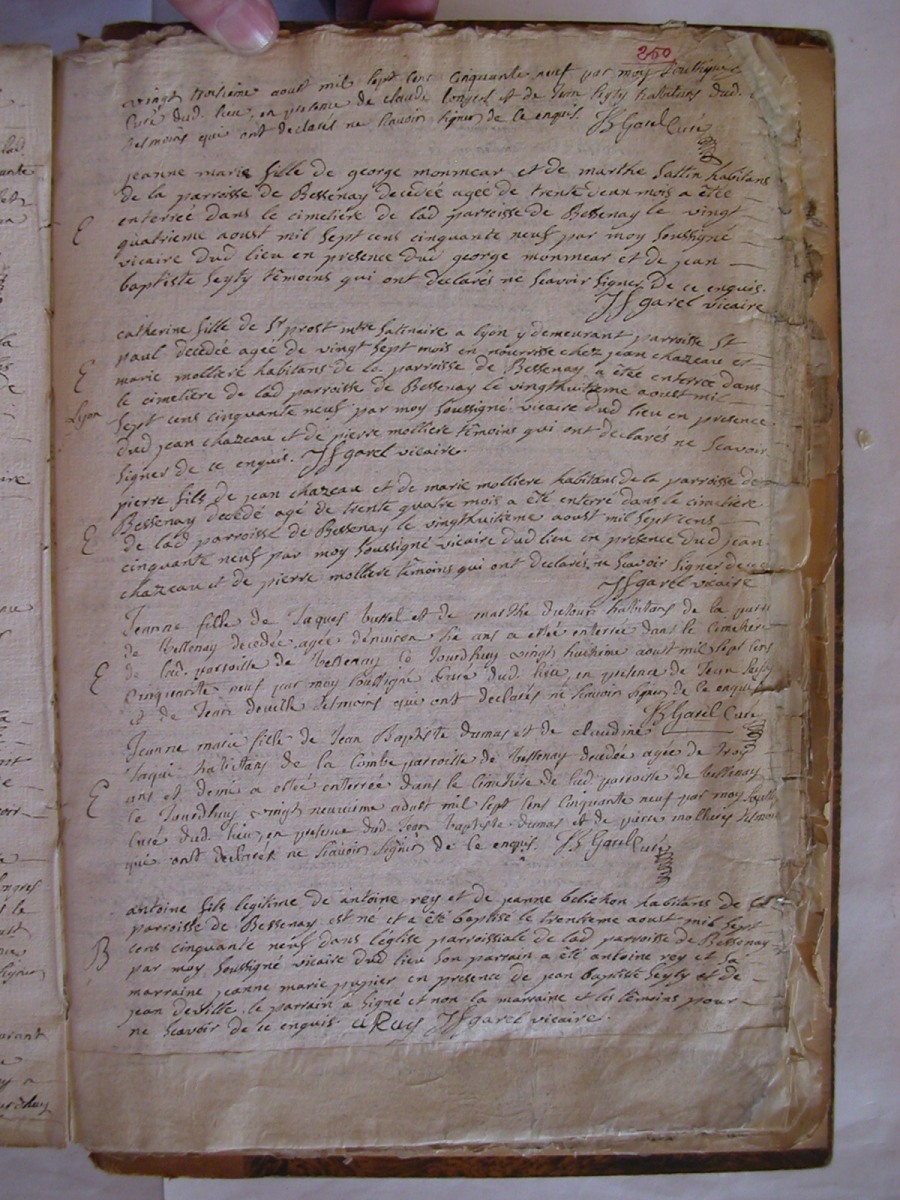 250
vingt troisieme aoust mil sept cens cinquante neuf par moy soussigné
curé dud. lieu en presence de claude et de jean seyty habitans dud.
tesmoins qui ont declarés ne scavoir signer de ce enquis. Garel Curé
jeanne marie fille de george monmear et de marthe fattin habitans
de la parroisse de Bessenay decedée agée de trente deux mois a été
E
enterrée dans le cimetière de lad parroisse de Bessenay le vingt
quatrieme aoust mil sept cens cinquante neuf par moy soussigné
vicaire dud lieu en presence dud george monmear et de jean
baptiste seyty têmoins qui ont declarés ne scavoir signer de ce enquis.
garel vicaire
catherine fille de Sr prost mtre satinaire a lyon y demeurant parroisse St
paul decedée agée de vingt sept mois en nourrisse chez jean chazeau et
E
marie molliere habitans de la parroisse de Bessenay a été enterrée dans
le cimetière de lad parroisse de Bessenay le vingthuitieme aoust mil
Lyon
sept cens cinquante neuf par moy soussigné vicaire dud lieu en presence
dud jean chazeau et de pierre molliere têmoins qui ont declarés ne scavoir
signer de ce enquis. garel vicaire.
pierre fils de jean chazeau et de marie molliere habitans de la parroisse de
Bessenay decedé agé de trente quatre mois a été enterré dans le cimetière
E
de lad parroisse de Bessenay le vingthuitieme aoust mil sept cens
cinquante neuf par moy soussigné vicaire dud lieu en presence dud jean
chazeau et de pierre molliere têmoins qui ont declarés ne scavoir signer de ce
garel vicaire
Jeanne fille de Jaques et de marthe dutour habitans de la
de Bessenay decedée agée d'environ ans a estée enterrée dans le cimetiere
E
de lad. parroisse de Bessenay ce Jourdhuy vingt huitieme aoust mil sept cens
Cinquante neuf par moy soussigné Curé dud. lieu en presence de Jean seyty
et de Jean deville tesmoins qui ont declarés ne scavoir signer de ce enquis
Garel Curé
Jeanne marie fille de Jean Baptiste dumas et de claudine
habittans de la Combe parroisse de Bessenay decedée agée de trois
E
ans et demi a estée enterrée dans le Cimetière de lad parroisse de bessenay
le Jourdhuy vingt neuvieme aoust mil sept cens cinquante neuf par moy
curé dud. lieu en presence dud. Jean Baptiste dumas et de pierre molliere
qui ont declarés ne scavoir signer de ce enquis. Garel Curé
antoine fils legitime de antoine rey et de jeanne belichon habitans de
parroisse de Bessenay est ne et a été baptisé le trentieme aoust mil sept
cens cinquante neuf dans l'église parroissiale de lad parroisse de Bessenay
B
par moy soussigné vicaire dud lieu son parrain a été antoine rey et sa
marraine jeanne marie pupier en presence de jean baptiste seyty et de
jean deville. le parrain a signé et non la marraine et les têmoins pour
ne scavoir de ce enquis. a Rey garel vicaire.